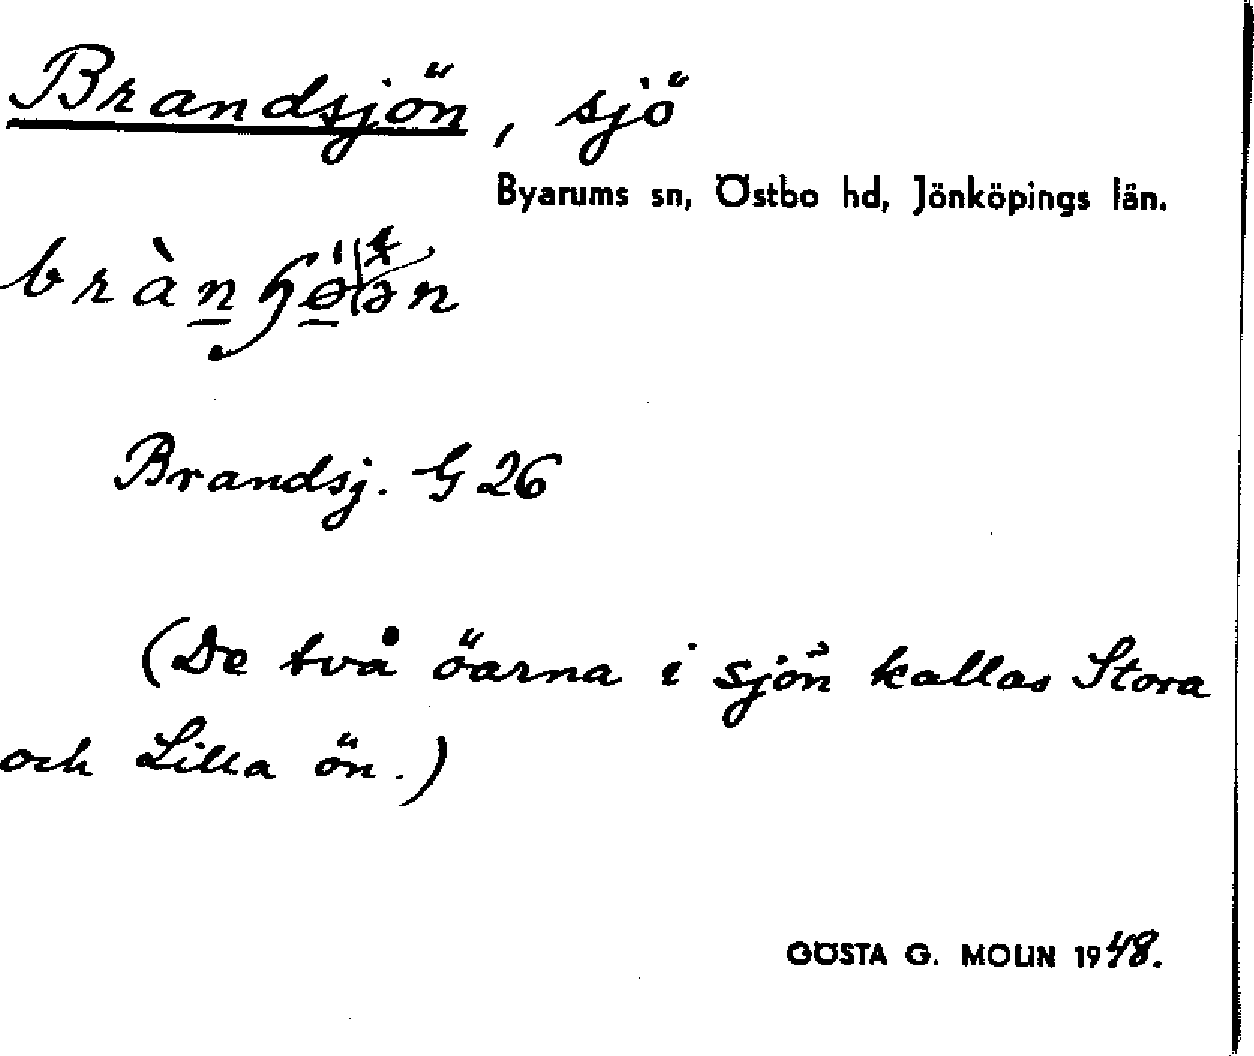 Brandsjön, sjö
Byarums sn, Östbo hd, Jönköpings län.
Brandsj. G 26
(De två öarna i sjön kallas Stora
och Lilla ön.)
GÖSTA G. MOLIN 1948.